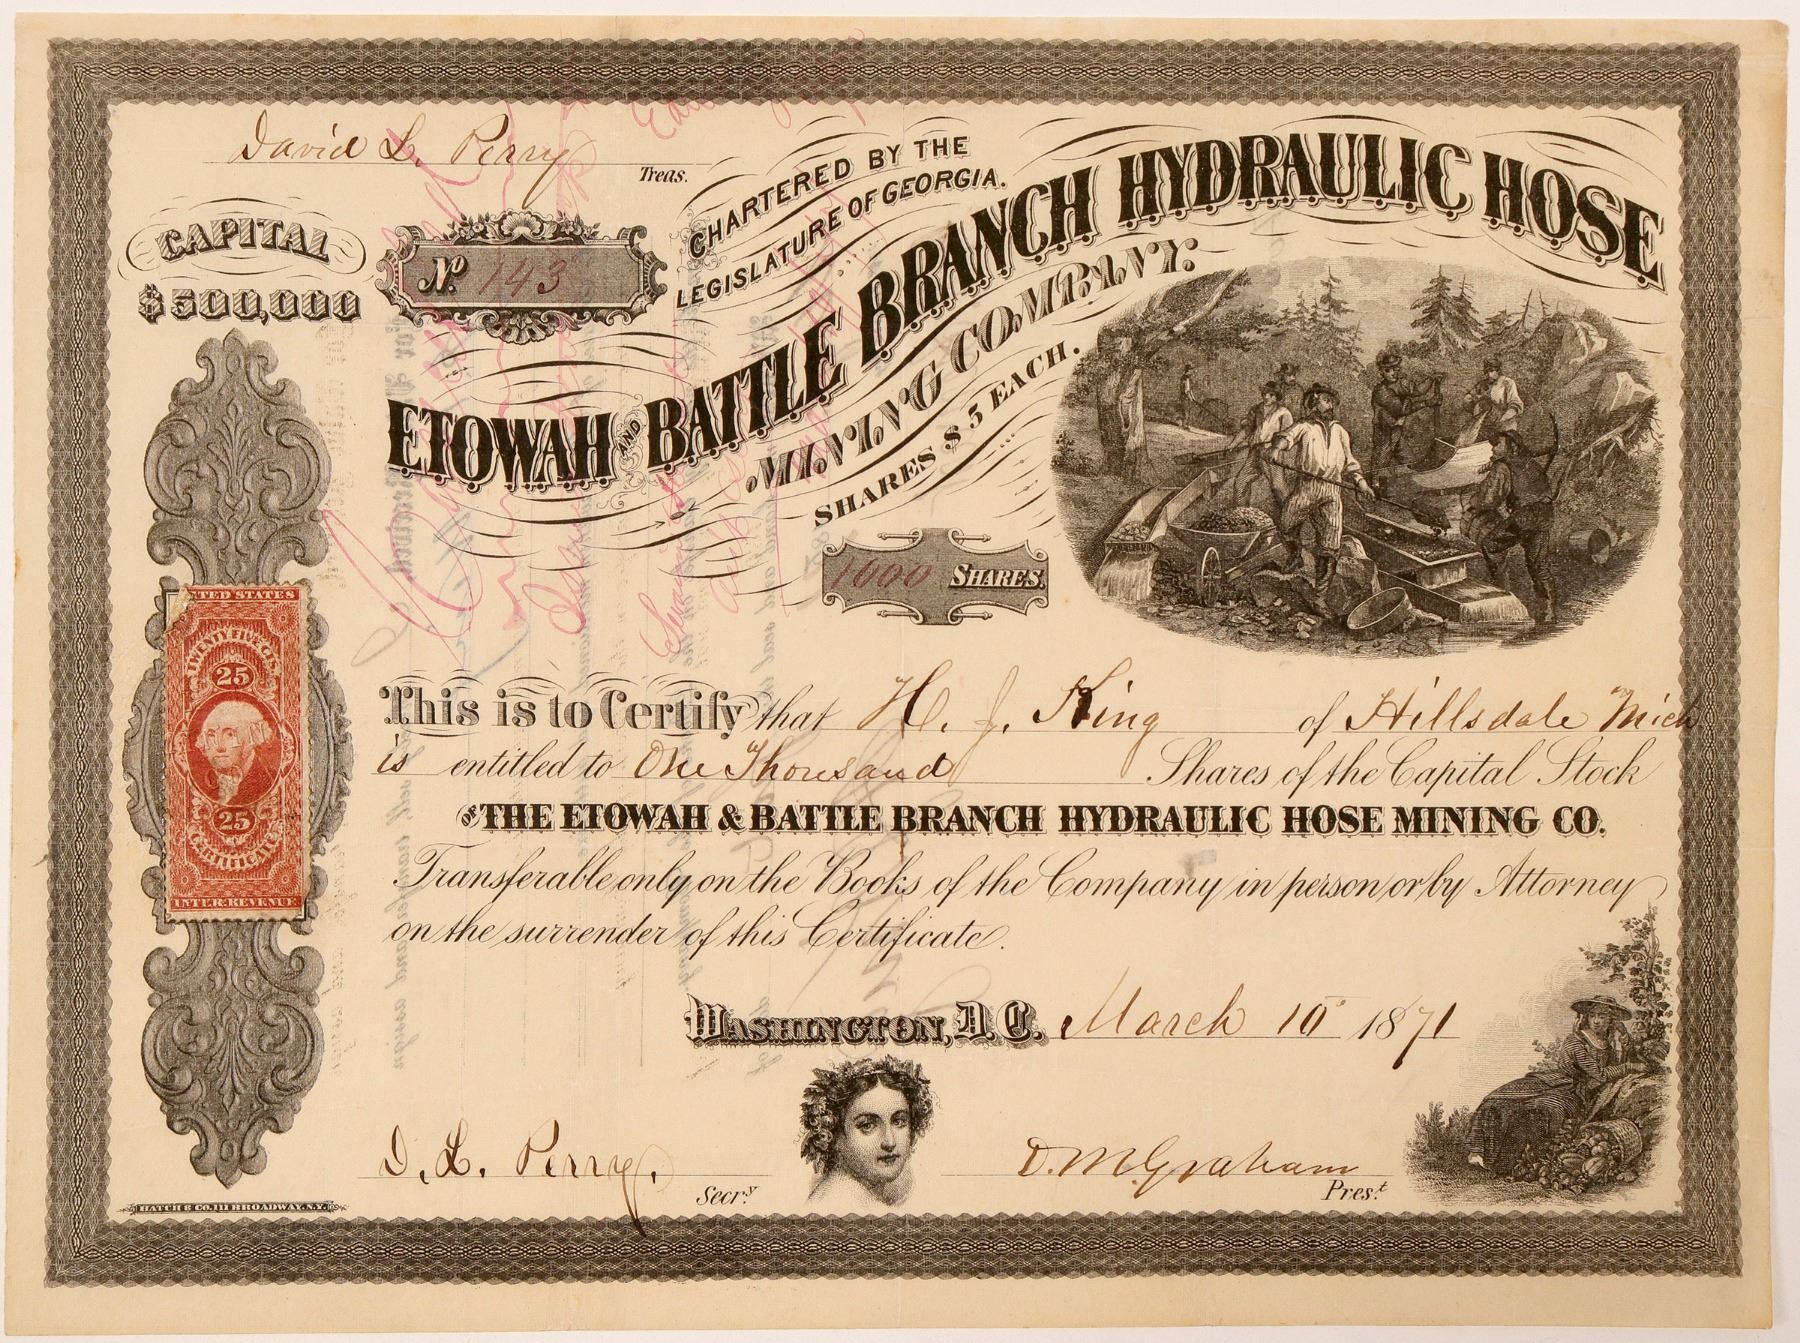 David L. Perry
Treas.
CAPITAL
$500,000
No. 143
CHARTERED BY THE
LEGISLATURE OF GEORGIA.
ETOWAH AND BATTLE BRANCH HYDRAULIC HOSE
MINING COMPANY.
SHARES $5 EACH.
1000 SHARES
UNITED STATES
TWENTY FIVE CTS
25
25
CERTIFICATE
INTER. REVENUE
This is to Certify that H. J. King of Hillsdale Mich
is entitled to One Thousand Shares of the Capital Stock
OF THE ETOWAH & BATTLE BRANCH HYDRAULIC HOSE MINING CO.
Transferable only on the Books of the Company in person or by Attorney
on the surrender of this Certificate.
WASHINGTON, D. C. March 10 1871
D. L. Perry. Secr.y
D. M. Graham Pres.t
HATCH & CO. 111 BROADWAY. N.Y.